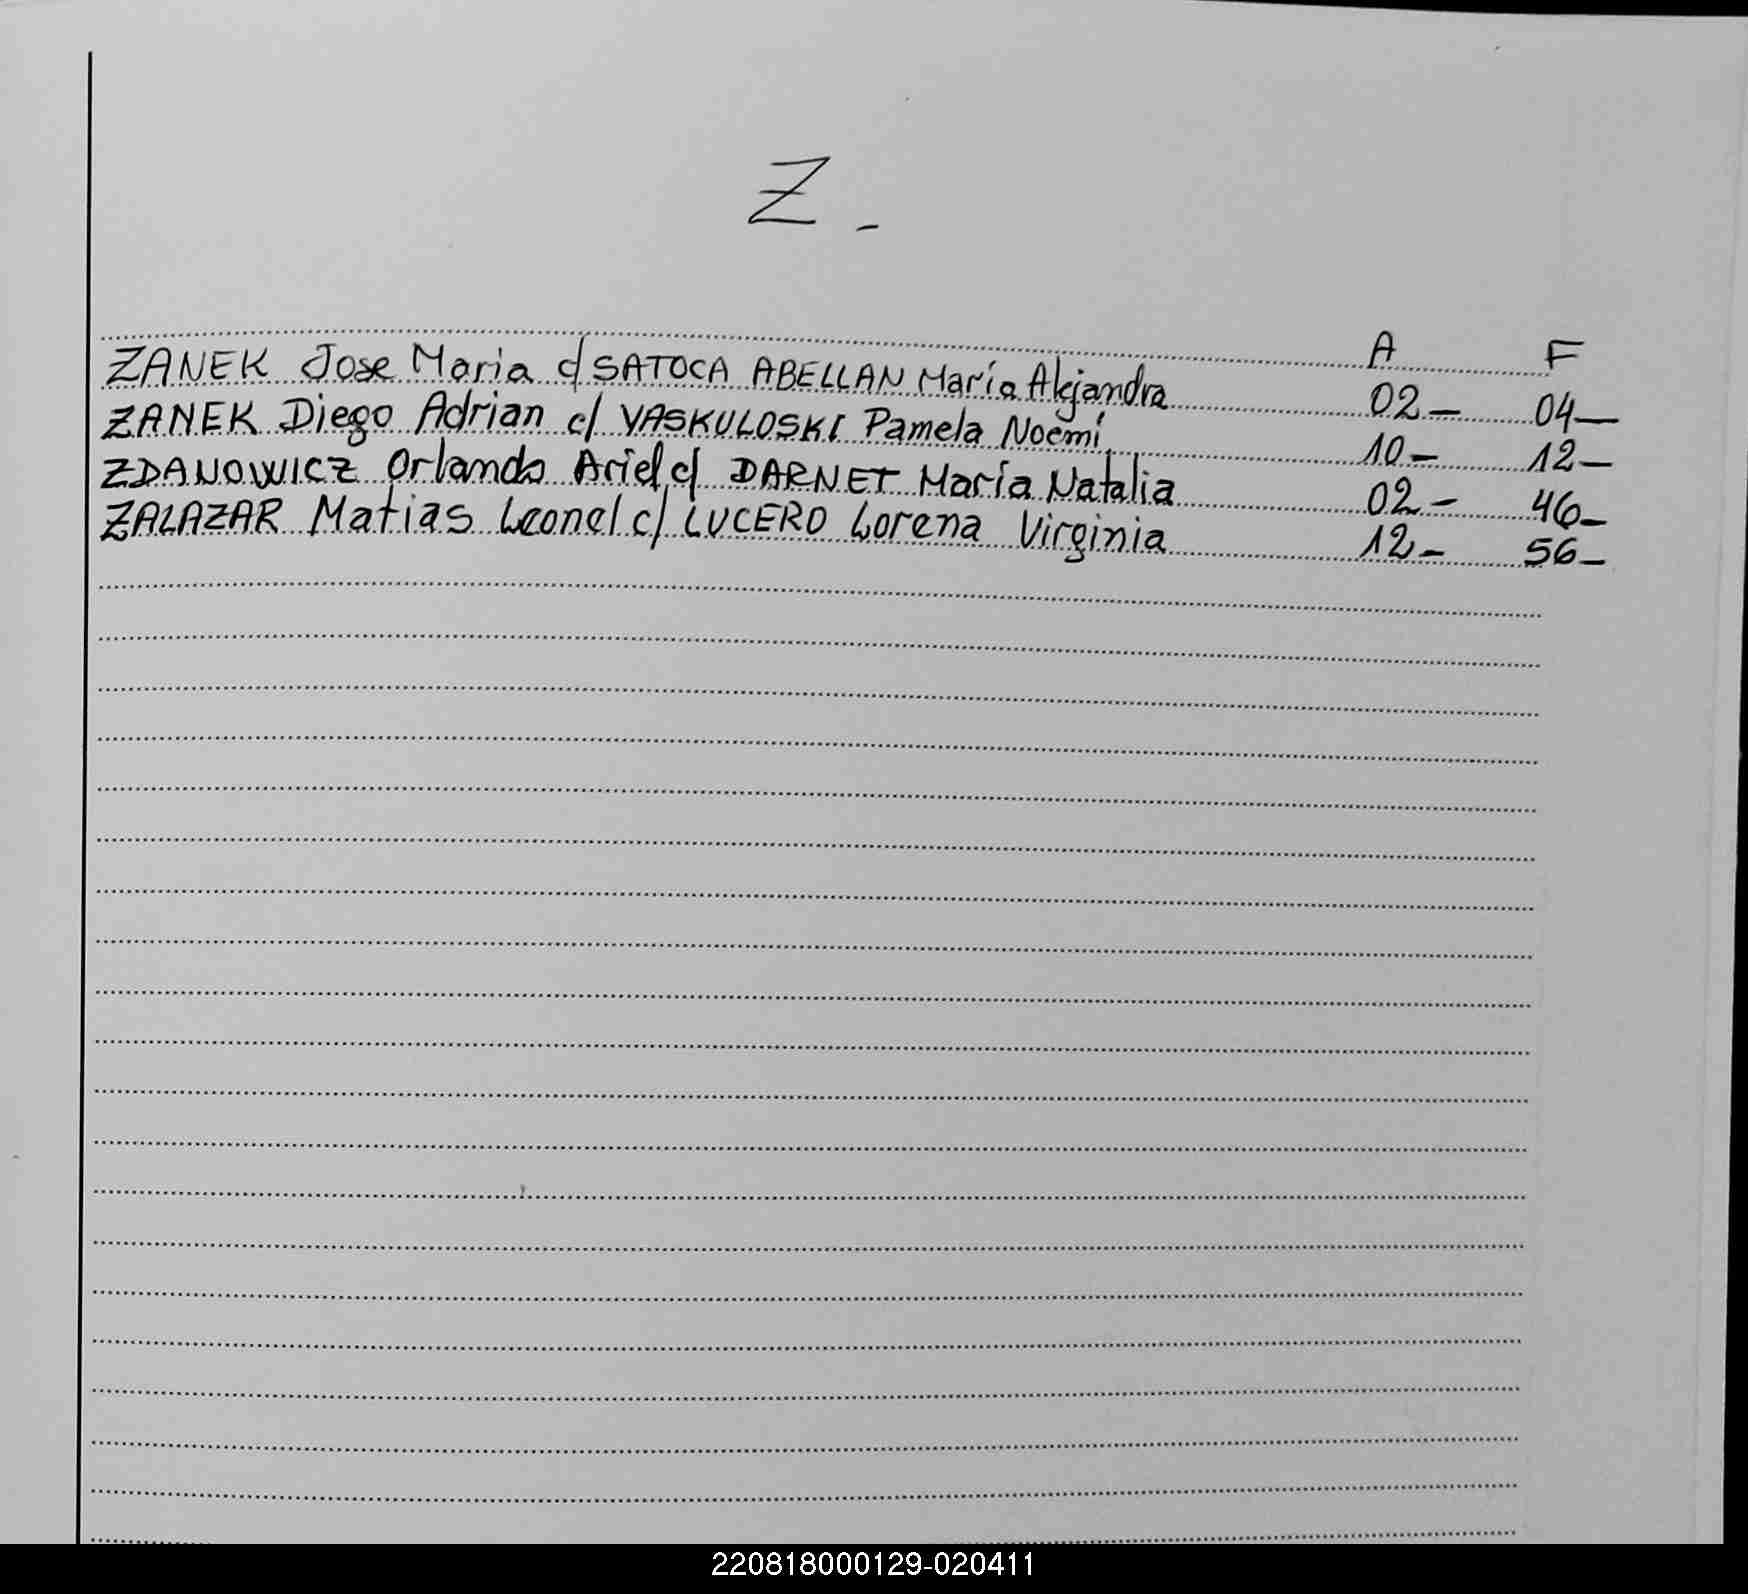 Z -
A F
ZANEK Jose Maria c/ SATOCA ABELLAN María Alejandra 02- 04-
ZANEK Diego Adrian c/ VASKULOSKI Pamela Noemí 10- 12-
ZDANOWICZ Orlando Ariel c/ DARNET María Natalia 02- 46-
ZALAZAR Matias Leonel c/ LUCERO Lorena Virginia 12- 56-
220818000129-020411